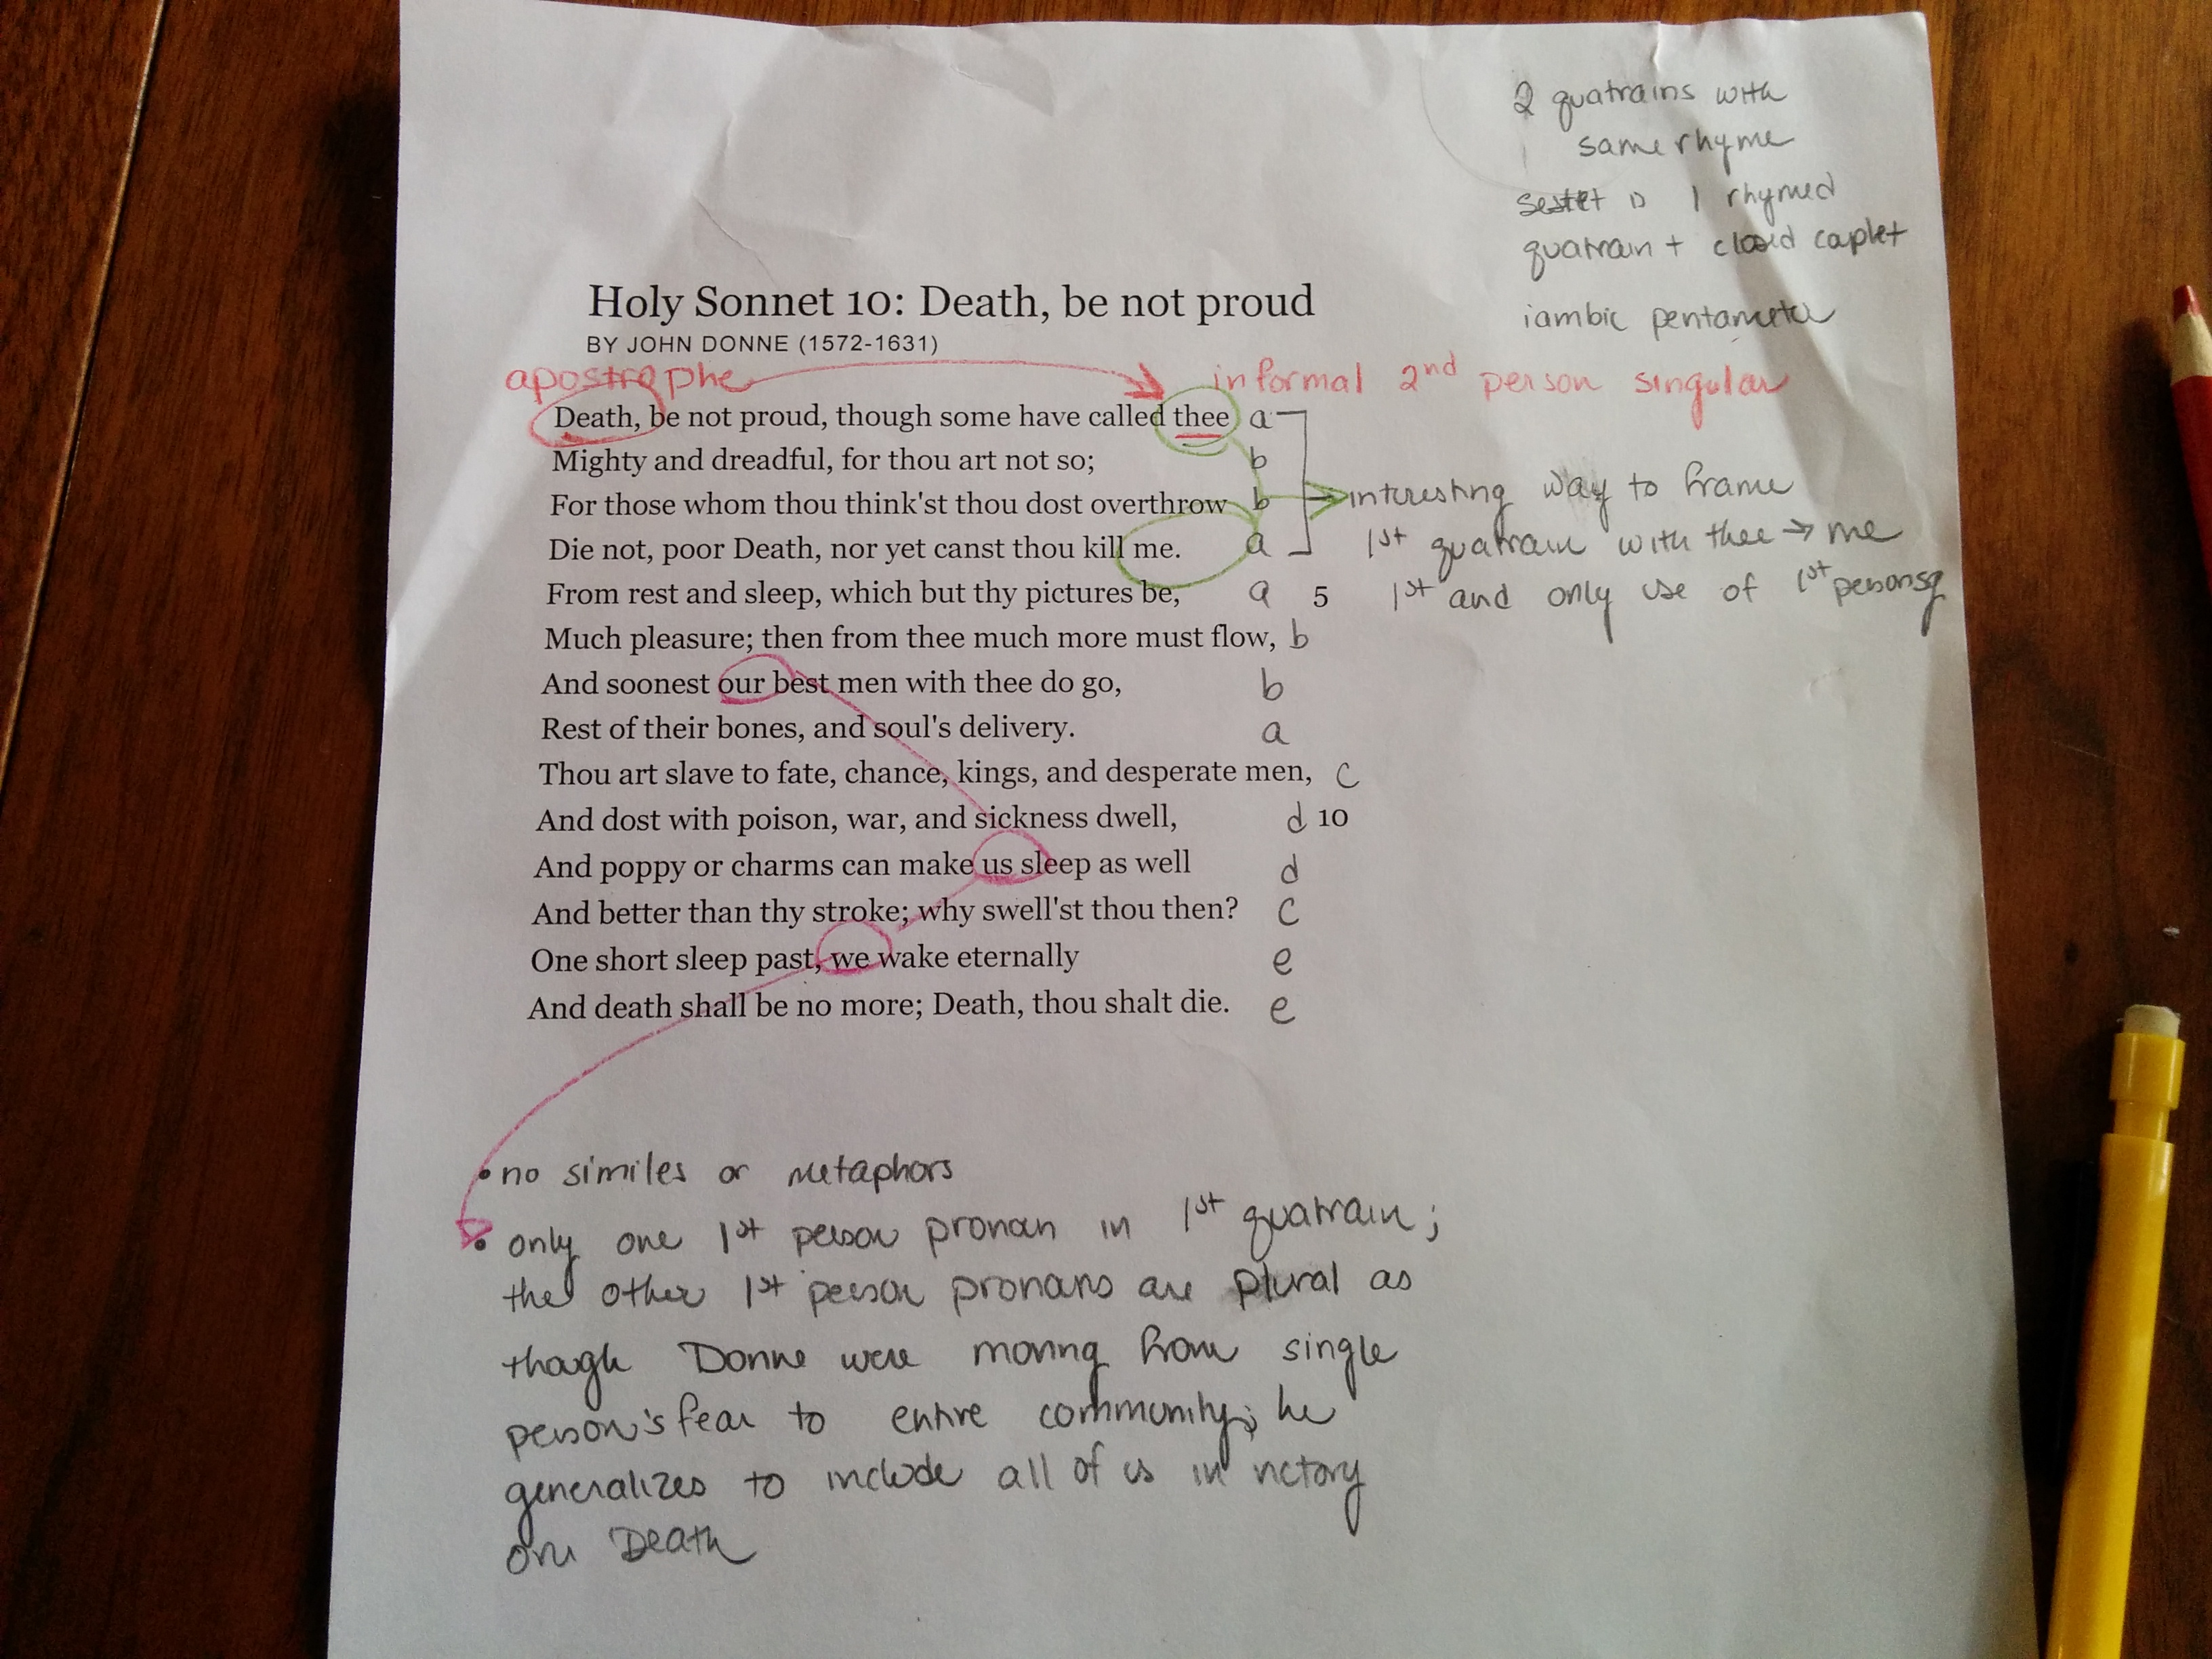 2 quatrains with
same rhyme
sestet is 1 rhymed
quatrain + closed caplet
iambic pentameter
Holy Sonnet 10: Death, be not proud
BY JOHN DONNE (1572-1631)
apostrophe
informal 2nd person singular
Death, be not proud, though some have called thee a
Mighty and dreadful, for thou art not so; b
For those whom thou think'st thou dost overthrow b
Die not, poor Death, nor yet canst thou kill me. a
interesting way to frame
1st quatrain with thee → me
1st and only use of 1st person sg
From rest and sleep, which but thy pictures be, a 5
Much pleasure; then from thee much more must flow, b
And soonest our best men with thee do go, b
Rest of their bones, and soul's delivery. a
Thou art slave to fate, chance, kings, and desperate men, c
And dost with poison, war, and sickness dwell, d 10
And poppy or charms can make us sleep as well d
And better than thy stroke; why swell'st thou then? c
One short sleep past, we wake eternally e
And death shall be no more; Death, thou shalt die. e
• no similes or metaphors
• only one 1st person pronoun in 1st quatrain;
the other 1st person pronouns are plural as
though Donne were moving from single
person's fear to entire community; he
generalizes to include all of us in victory
over Death